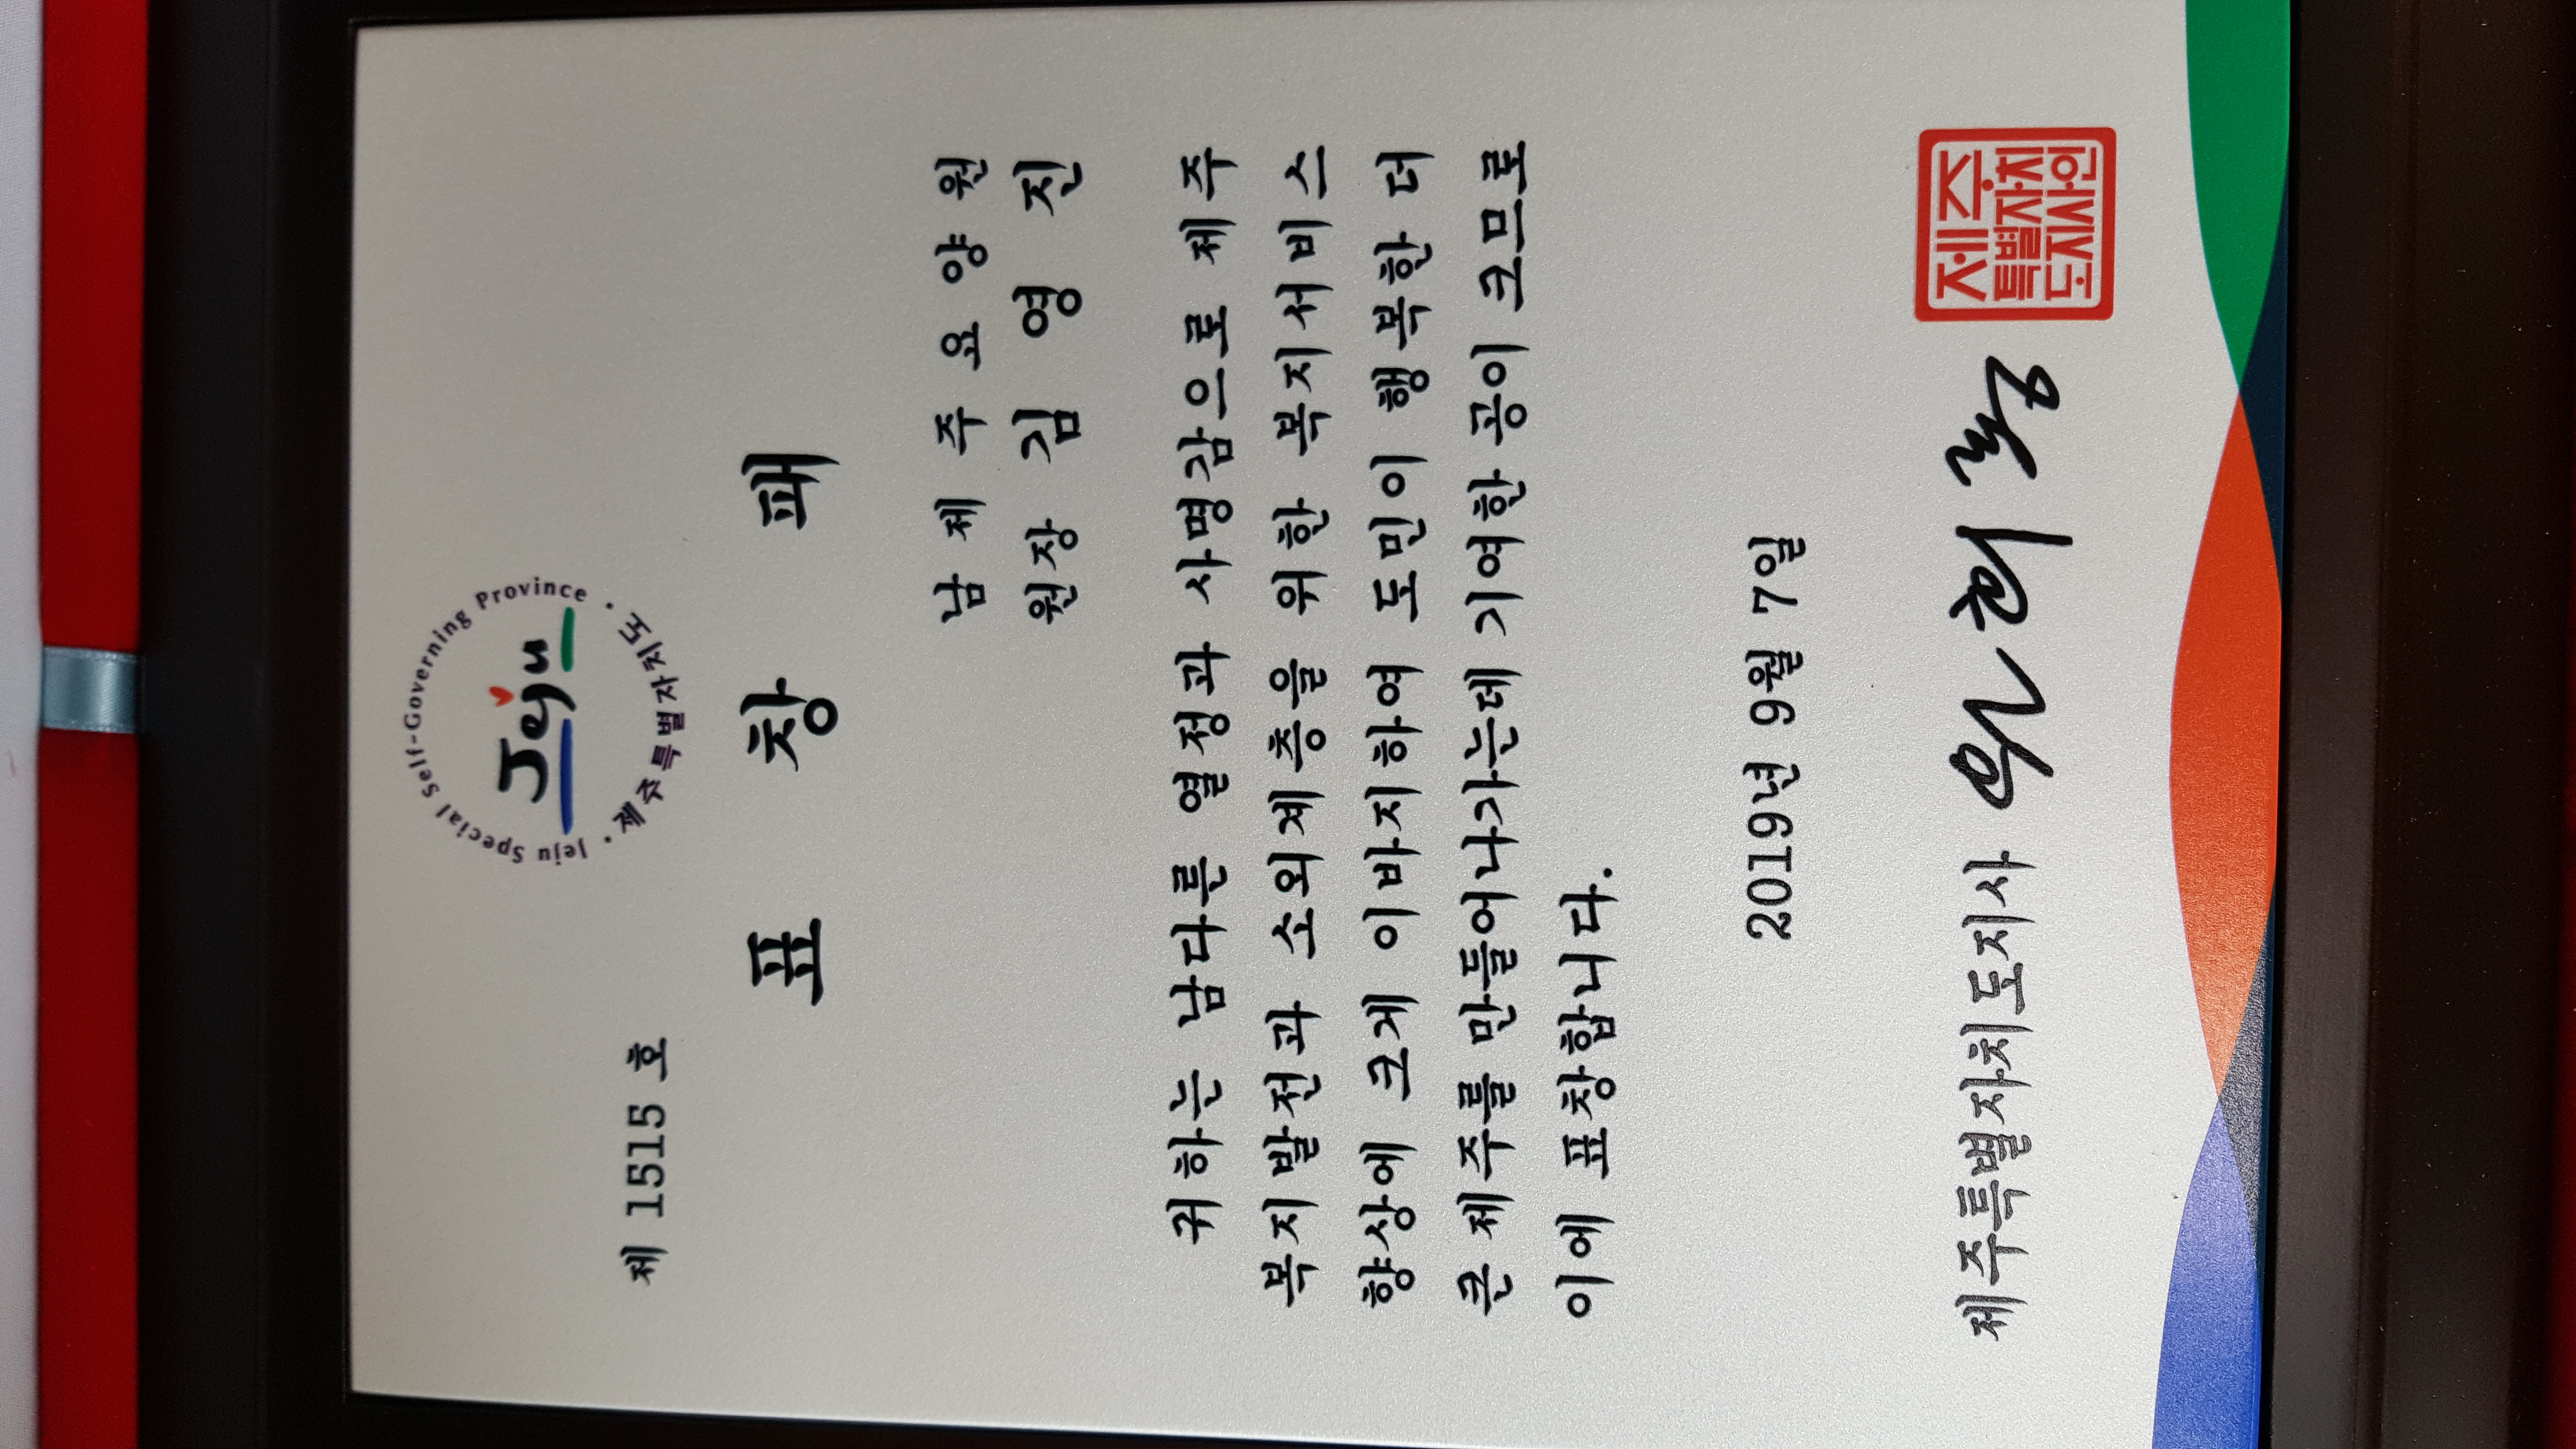 Jeju Special Self-Governing Province
Jeju
제주특별자치도
제 1515 호
표 창 패
남 제 주 요 양 원
원장 김 영 진
귀하는 남다른 열정과 사명감으로 제주
복지발전과 소외계층을 위한 복지서비스
향상에 크게 이바지하여 도민이 행복한 더
큰 제주를 만들어나가는데 기여한 공이 크므로
이에 표창합니다.
2019년 9월 7일
제주특별자치도지사 원희룡
제주
특별자치
도지사인